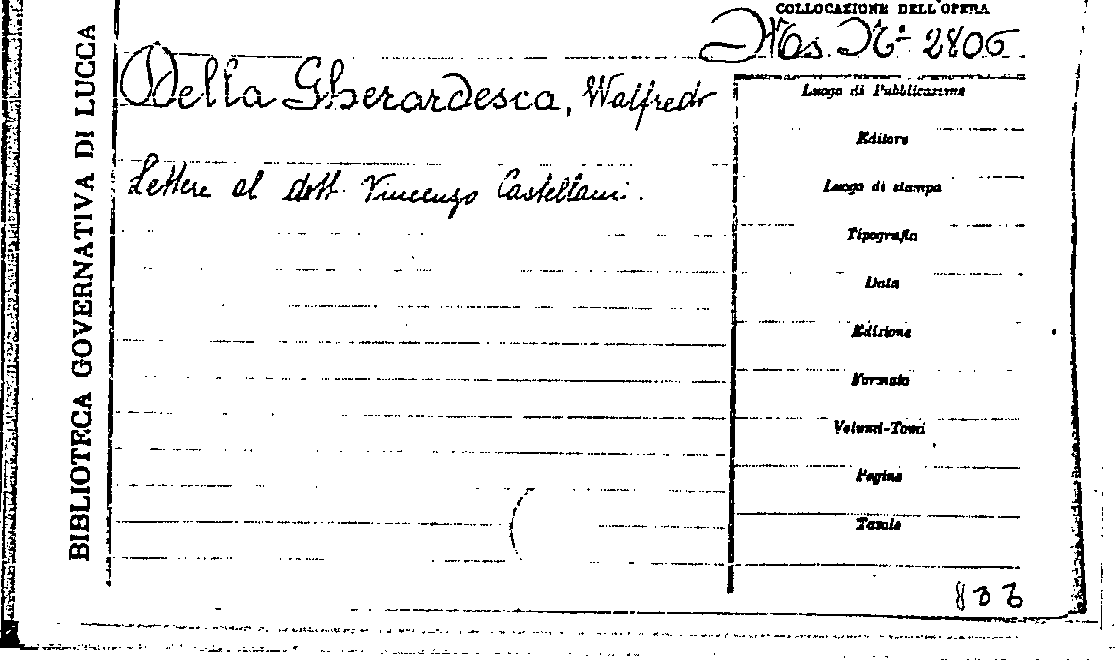 COLLOCAZIONE DELL'OPERA
Ms. Nº 2806
BIBLIOTECA GOVERNATIVA DI LUCCA
Della Gherardesca, Walfredo
Lettere al dott. Vincenzo Castellani.
Luogo di Pubblicazione
Editore
Luogo di stampa
Tipografia
Data
Edizione
Formato
Volumi-Tomi
Pagine
Tavole